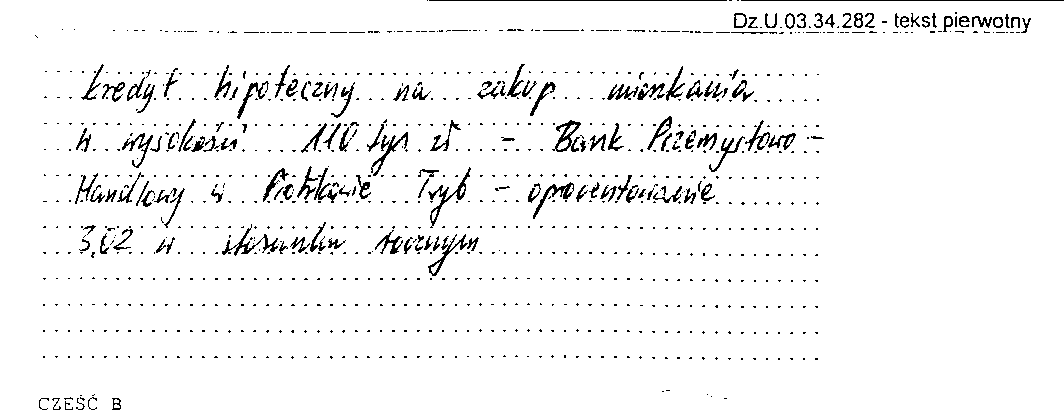 Dz.U.03.34.282 - tekst pierwotny
kredyt hipoteczny na zakup mieszkania
w wysokości 110 tys zł - Bank Przemysłowo -
Handlowy w Piotrkowie Tryb - oprocentowanie
3,02 w stosunku rocznym
CZEŚĆ B